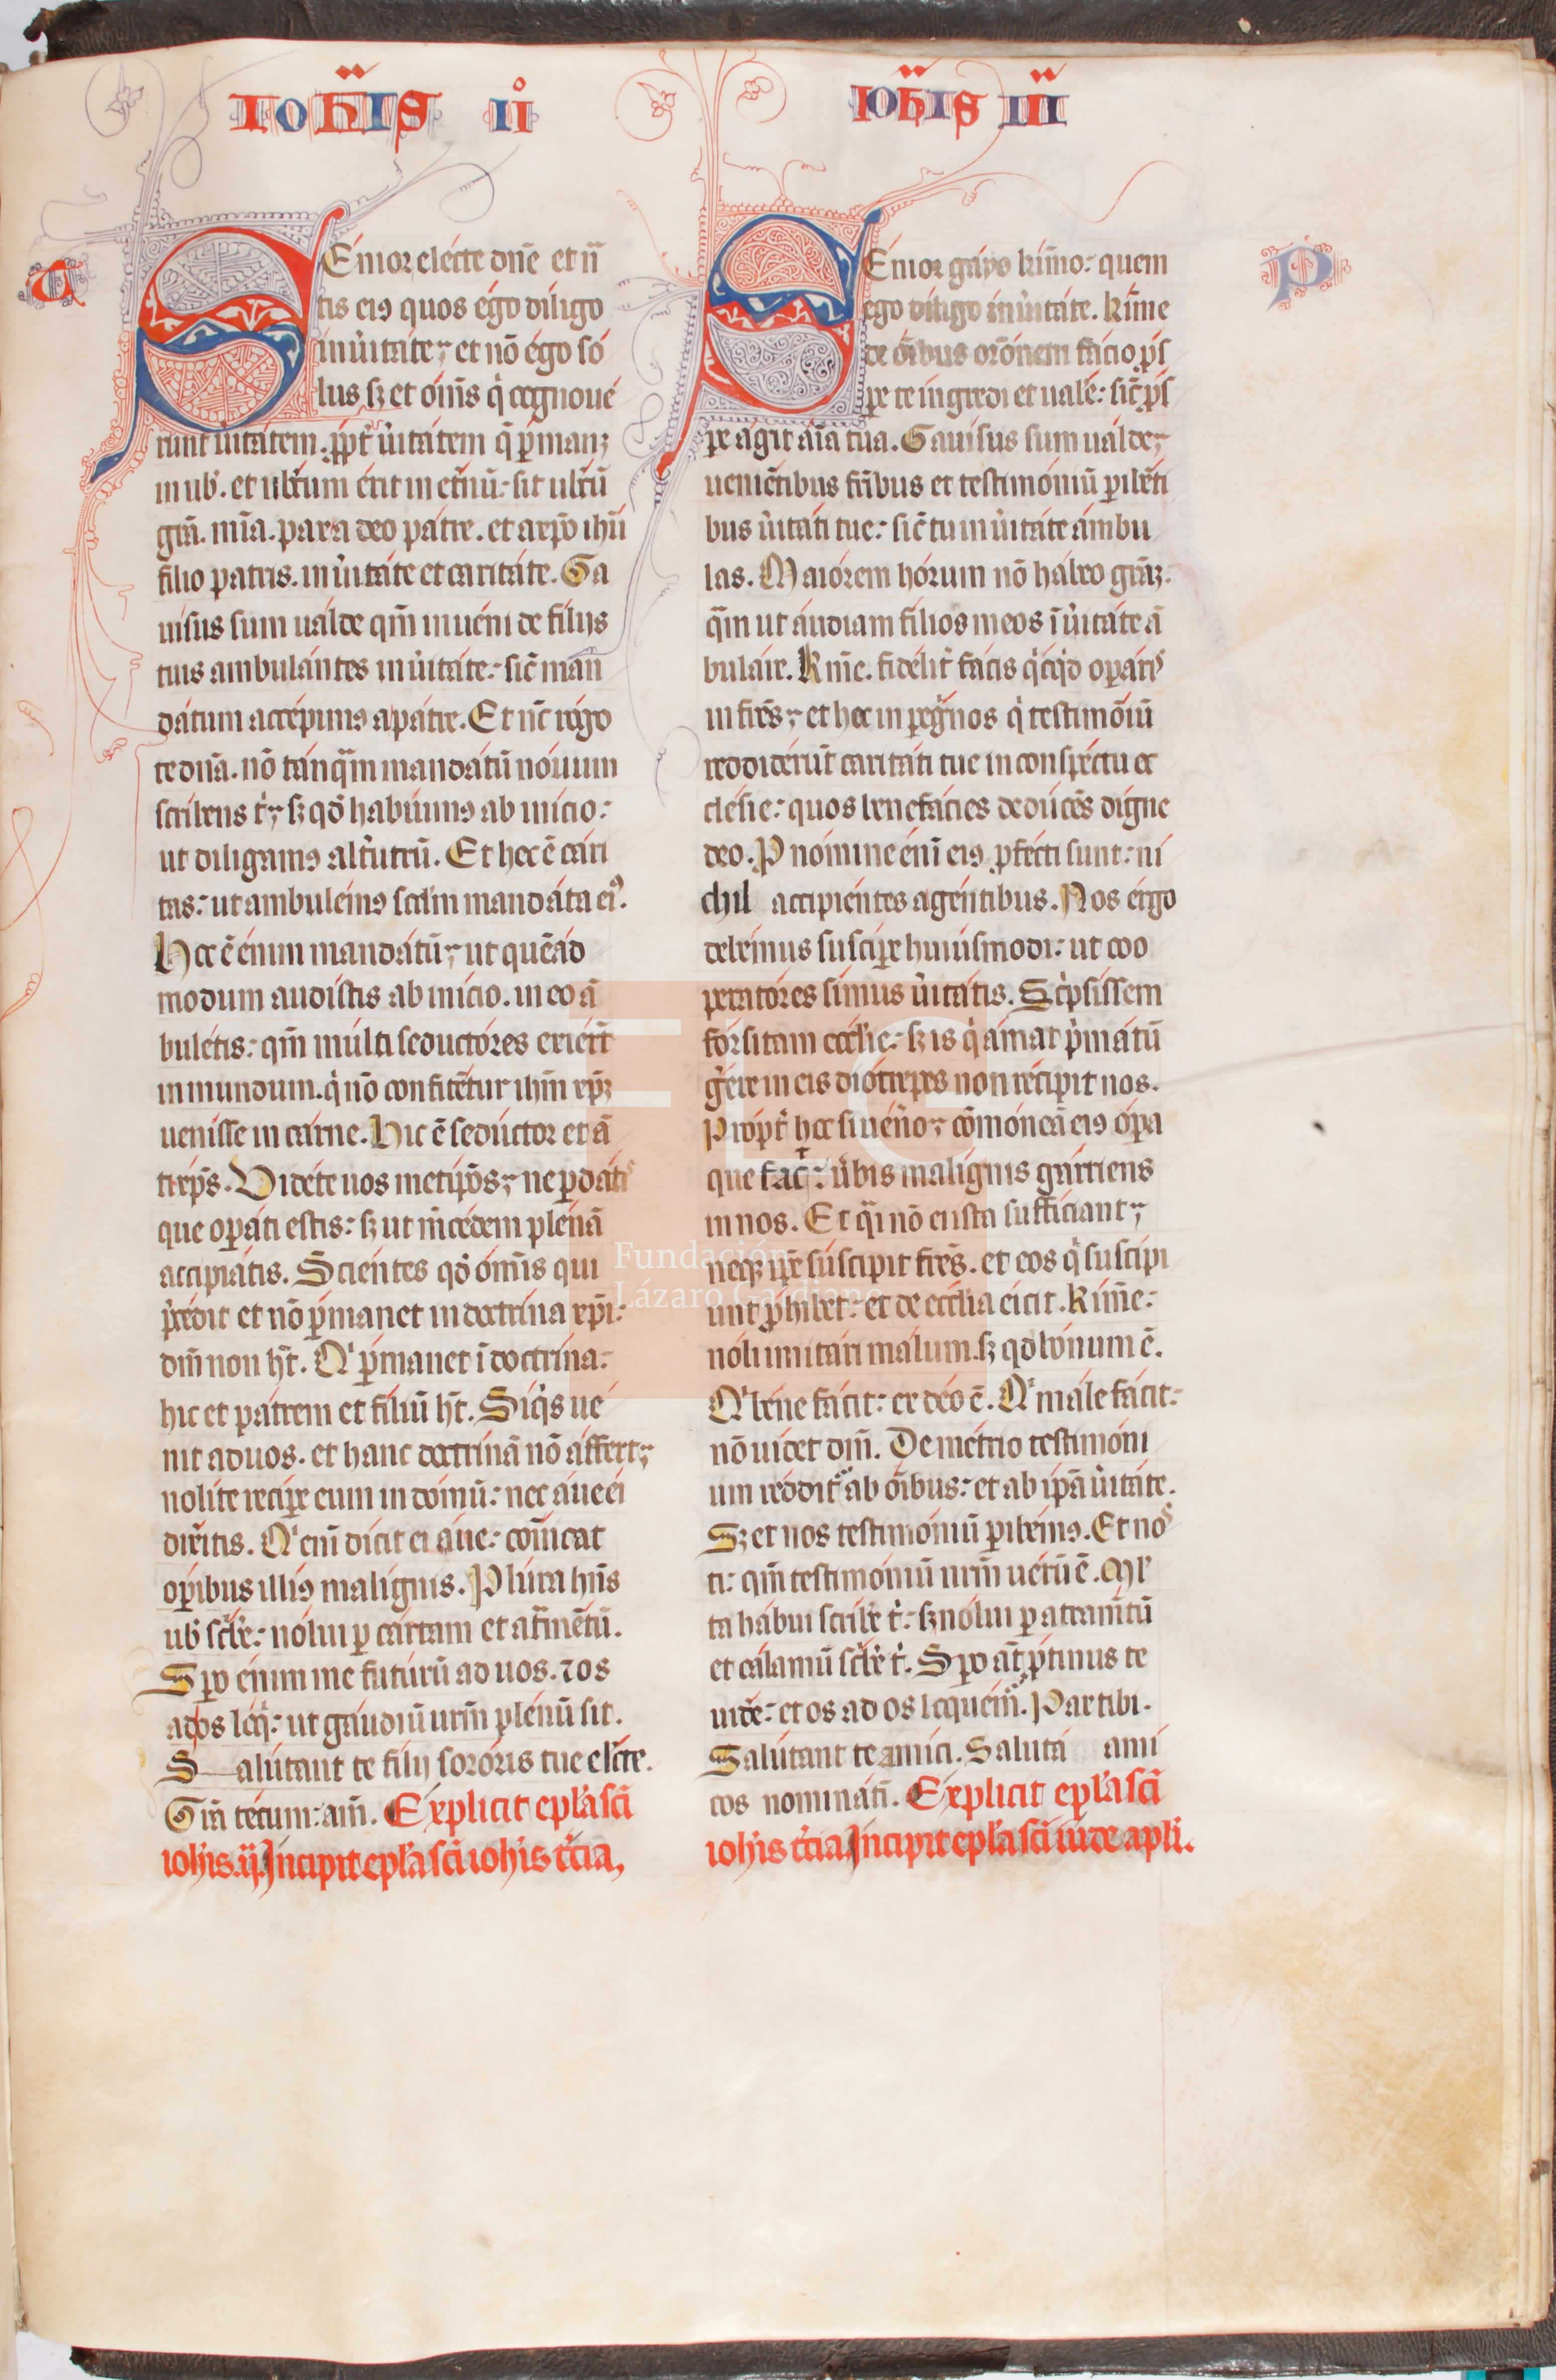 IOH̄IS II
a
SEnior electe dn̄e et n̄
tis ei9 quos égo díligo
in u̇itáte; et nō égo só
lus sꝫ et ōm̄s q̇ cognoué
runt u̇itátem. ꝓpt̄ u̇itátem q̄ ꝑmanꝫ
in uƀ. et uƀcum érit in et̄nū: sit uƀcū
gr̄a. mīa. pax a deo pátre. et a xp̄o ihū
filio patris. in u̇itáte et caritáte. Ga
uísus sum uálde qm̄ inuéni de fílijs
tuis ambulántes in u̇itáte: sic̄ man
dátum accépim9 a pátre. Et nc̄ rógo
te dn̄a. nō tánq̄m mandátū nóuum
scríbens ṫ; sꝫ qd̄ habúim9 ab início:
ut diligam9 altútrū. Et hec ē cári
tas: ut ambulém9 scd̄m mandáta ei9.
Hoc ē énim mandátū; ut quēád
modum audístis ab início. in eo ā
bulétis: qm̄ múlti seductóres exiér̄t
in mundum. q̇ nō confitētur ihm̄ xp̄ꝫ
uenísse in cárne. Hic ē sedúctor et ā
tixp̄s. Vidéte uos metip̄os; ne ꝑdátis
que oꝑáti estis: sꝫ ut m̄cédem plénā
accipiátis. Sciéntes qd̄ ómīs qui
p̄cédit et nō ꝑmanet in doctrína xp̄i:
dm̄ non h̄t. Qi ꝑmanet ī doctrína:
hic et pátrem et fíliū h̄t. Síq̇s ué
nit ad uos. et hanc doctrínā nō áffert;
nolíte recíꝑe eum in dómū: nec áue ei
dix̄itis. Qi enī dícit ei áue: com̄icat
oꝑibus illi9 malígnis. Plúra hn̄s
uƀ sc̄ƀe: nólui ꝑ cártam et at̄mētū.
Sꝑo énim me futúrū ad uos. ⁊ os
ad os loq̇: ut gáudiū ur̄m plénū sit.
Salútant te filij soróris tue elc̄te.
Gr̄a técum: am̄. Explicit epl̄a sc̄i
ioh̄is. ij. Incipit epl̄a sc̄i ioh̄is t̄cia,
IOH̄IS III
P
SEnior gáyo kmō: quem
ego díligo in u̇itáte. Kīme
de ōibus orōnem fácio ꝓs
ꝑe te íngredi et uale: sic̄ ꝓs
ꝑe ágit aīa tua. Gauísus sum uálde;
ueniētibus fr̄ibus et testimóniū ꝑibēti
bus u̇itáti tue: sic̄ tu in u̇itáte ámbu
las. Maiórem hórum nō hábeo gr̄aꝫ:
q̄m ut áudiam fílios meos ī u̇itáte ā
buláre. Kīme. fidélit̄ fácis q̇cq̇d oꝑáris
in fres; et hoc in ꝑeġnos q̇ testimōiū
reddidérūt caritáti tue in conspéctu ec
clésie: quos benefácies dedúcēs dígne
deo. P nómine énī ei9 ꝓfécti sunt: ni
chil accipiéntes a géntibus. Nos érgo
debémus suscíꝑe huiúsmodi: ut coo
peratóres símus u̇itátis. Sc̄psíssem
fórsitam eccl̄ie: sꝫ is q̇ ámat p̄mátū
g̓ére in eis diótrepes non récipit nos.
Própt̄ hoc si uéñ́o; cōmóneā ei9 óꝑa
que fac̄: u̇bis malígnis gárriens
in nos. Et q̄i nō ei ista suffíciant;
neqꝫ ip̄e súscipit fres. et eos q̇ suscípi
unt ꝓhíbet: et de eccl̄ia éicit. Kīme:
nóli imitári málum. sꝫ qd bónum ē.
Qi béne fácit: ex déo ē. Qi mále fácit:
nō uídet dm̄. Demétrio testimóni
um réddit᷑ ab ōibus: et ab ip̄a u̇itáte.
Sꝫ et nos testimóniū ꝑibém9. Et nos
ti: qm̄ testimóniū nr̄m uérū ē. Ml̄
ta hábui scríbe ṫ: sꝫ nólui ꝑ atramt̄ū
et cálamū sc̄ƀe ṫ. Sꝑo át ꝓtinus te
uidē: et os ad os loquém᷑. Pax tibi.
Salútant te amíci. Salutá amí
cos nominát̄i. Explicit epl̄a sc̄i
ioh̄is t̄cia Incipit epl̄a sc̄i iúde apl̄i.
FLG
Fundación
Lázaro Galdiano